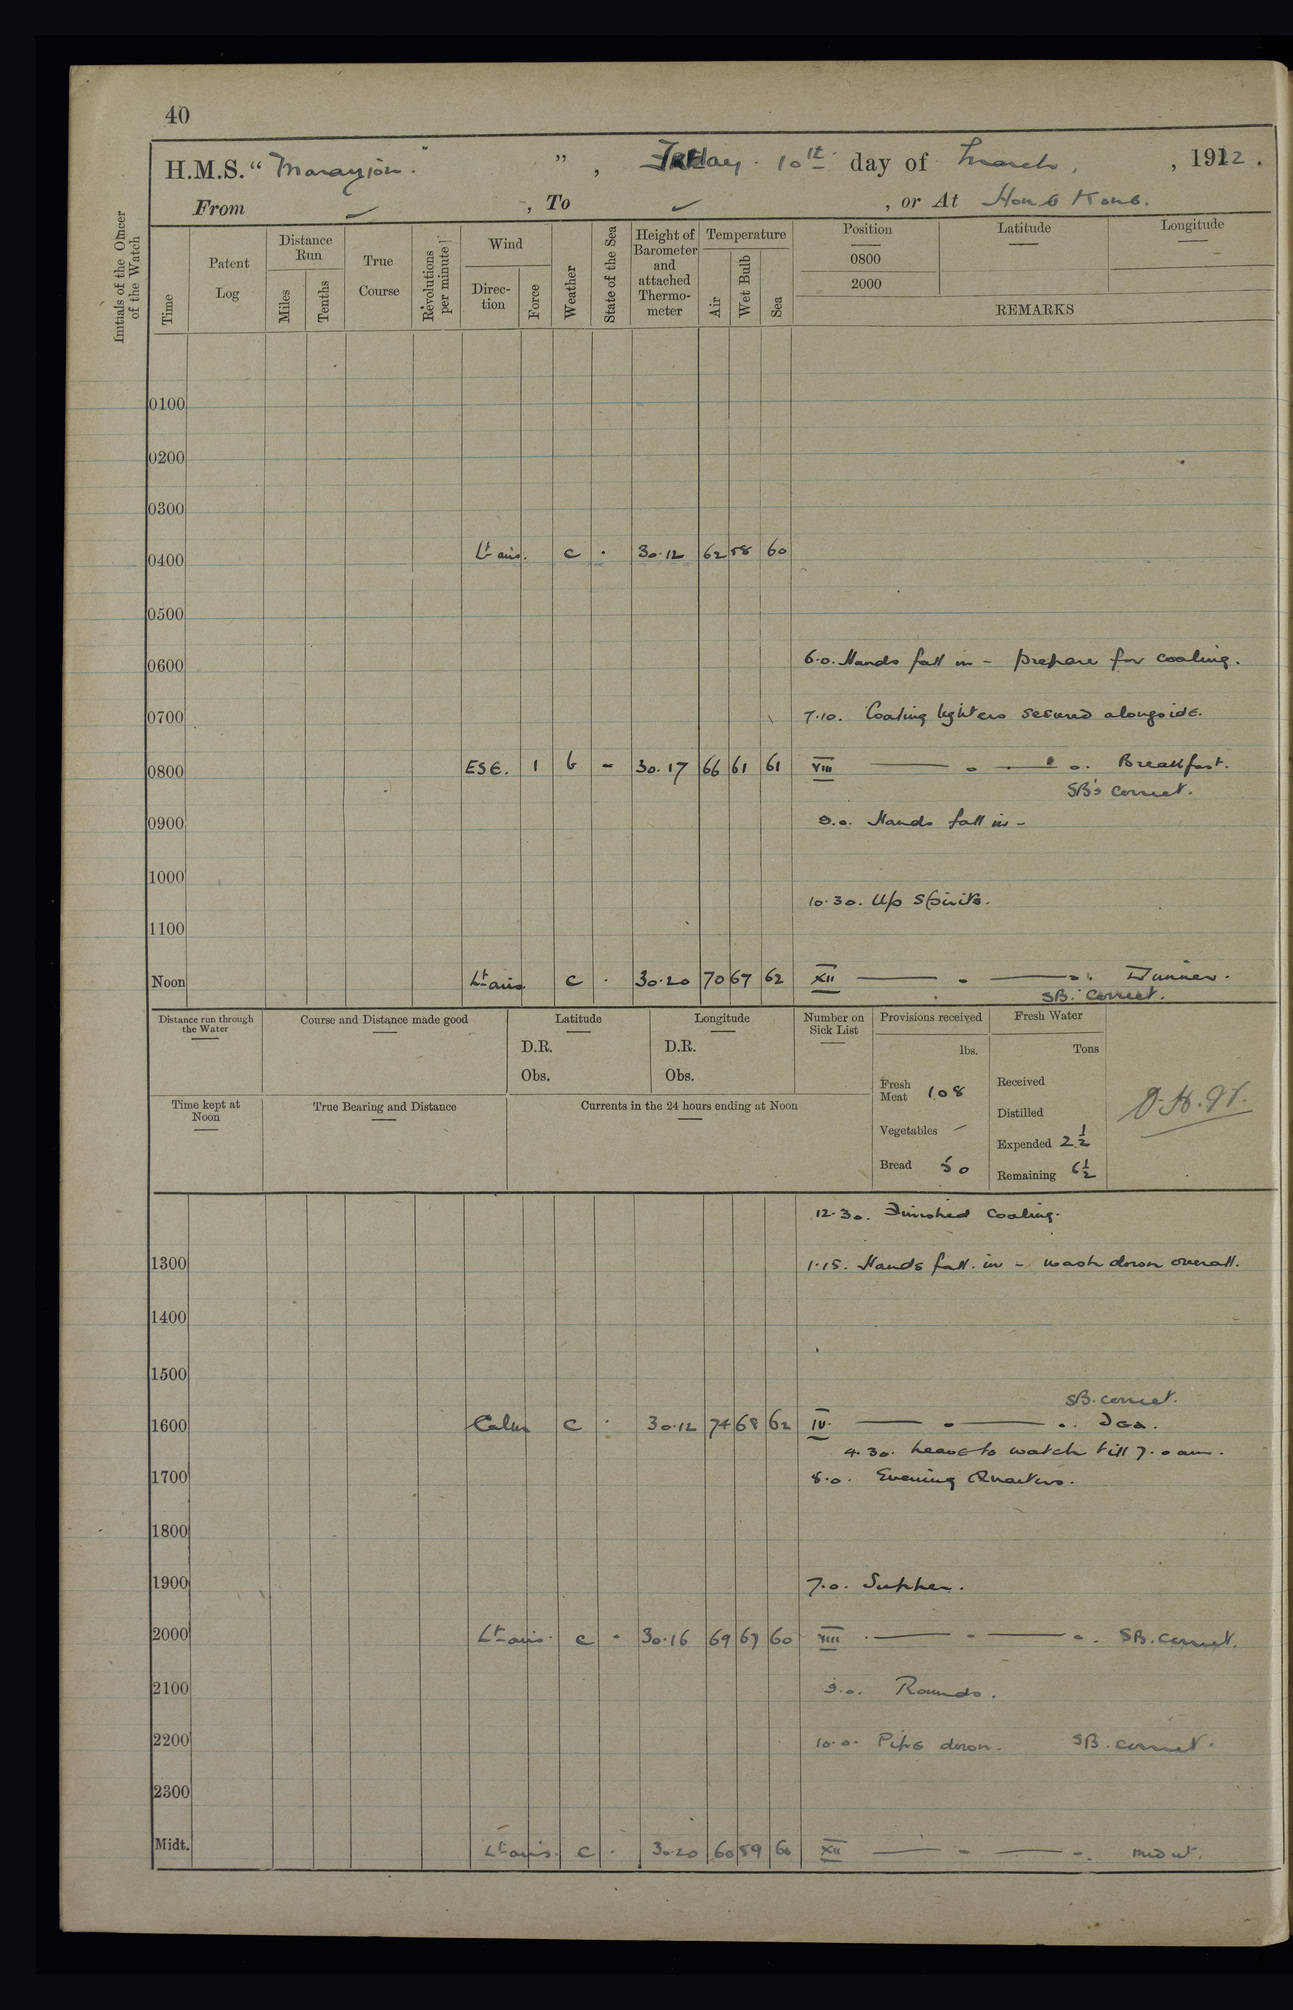 40
H.M.S. “ Marazion. ” , Friday. 10th day of March, , 1922 .
From ✓ , To ✓ , or At Hong Kong.
Initials of the Officer of the Watch
Time
Patent Log
Distance Run
Miles
Tenths
True Course
Revolutions per minute
Wind
Direc-tion
Force
Weather
State of the Sea
Height of Barometer and attached Thermo-meter
Temperature
Air
Wet Bulb
Sea
Position
0800
2000
Latitude
Longitude
REMARKS
0100
0200
0300
0400 Lt airs. c . 30.12 62 58 60
0500
0600 6.0. Hands fall in - prepare for coaling.
0700 7.10. Coaling lighters secured alongside.
0800 ESE. 1 b - 30.17 66 61 61 VIII —— " —— ". Breakfast.
SB's correct.
0900 9.0. Hands fall in -
1000
10.30. Up spirits.
1100
Noon Lt airs c . 30.20 70 67 62 XII —— " —— ". Dinner.
SB. correct.
Distance run through the Water
Course and Distance made good
Latitude
D.R.
Obs.
Longitude
D.R.
Obs.
Number on Sick List
Provisions received
lbs.
Fresh Meat 108
Vegetables –
Bread 50
Fresh Water
Tons
Received
Distilled
Expended 2½
Remaining 6½
Time kept at Noon
True Bearing and Distance
Currents in the 24 hours ending at Noon
12.30. Finished coaling.
1300 1.15. Hands fall in - wash down overall.
1400
1500
SB. correct.
1600 Calm c . 30.12 74 68 62 IV. —— " —— ". Tea.
4.30. Leave to watch till 7.0 am.
1700 8.0. Evening Quarters.
1800
1900 7.0. Supper.
2000 Lt airs. c . 30.16 69 67 60 VIII —— " —— ". SB. correct.
2100 9.0. Rounds.
2200 10.0. Pipe down. SB. correct.
2300
Midt. Lt airs. c . 30.20 60 59 60 XII —— " —— ".